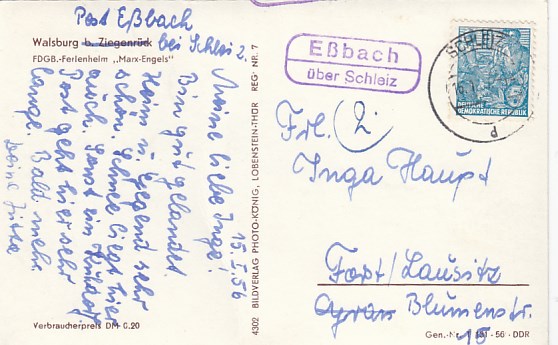 Post Eßbach
Walsburg b. Ziegenrück bei Schleiz
FDGB.-Ferienheim „Marx-Engels"
15.I.56
Meine liebe Inge!
Bin gut gelandet.
Heim u. Gegend sehr
schön. Schnee liegt hier
auch. Sonst ein
Post geht hier sehr
lange. Bald mehr.
Deine
Verbraucherpreis DM 0.20
4302 BILDVERLAG PHOTO-KÖNIG, LOBENSTEIN-THÜR REG-NR. 7
Eßbach
über Schleiz
SCHLEIZ
d
DEUTSCHE
DEMOKRATISCHE REPUBLIK
5
Frl. 2
Inga Haupt
Forst/Lausitz
Blumenstr.
15
Gen.-Nr. 151 - 56 - DDR